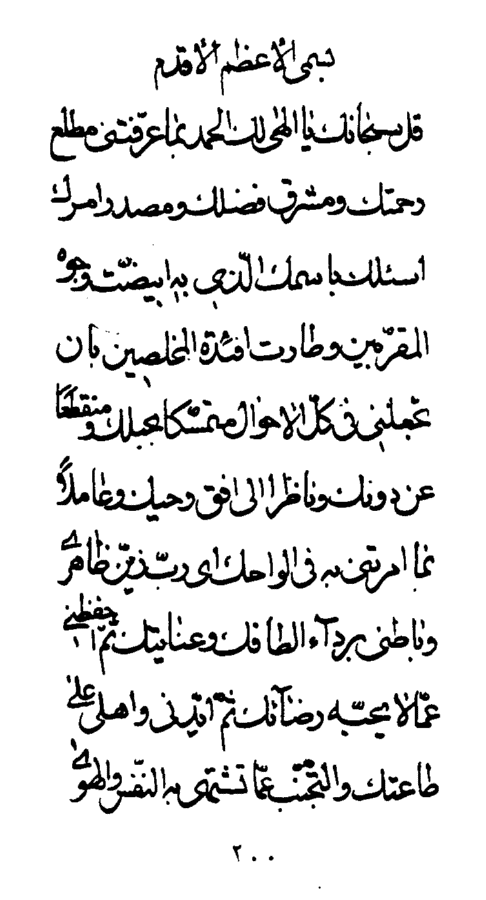 بسمی الاعظم الاقدم
قل سبحانک یا الهی لک الحمد بما عرفتنی مطلع
رحمتک ومشرق فضلک ومصدر امرک
اسئلک باسمک الّذی به ابیضّت وجوه
المقرّبین وطارت افئدة المخلصین بان
تجعلنی فی کلّ الاحوال متمسّکا بحبلک ومنقطعًا
عن دونک وناظرا الی افق وحیک وعاملاً
بما امرتنی به فی الواحک ای ربّ زیّن ظاهری
وباطنی بردآء الطافک وعنایتک ثمّ احفظنی
عمّا لا یحبّه رضآئک ثمّ ایّدنی واهلی علی
طاعتک والتجنّب عمّا تشتهی به النّفس والهوی
۲۰۰